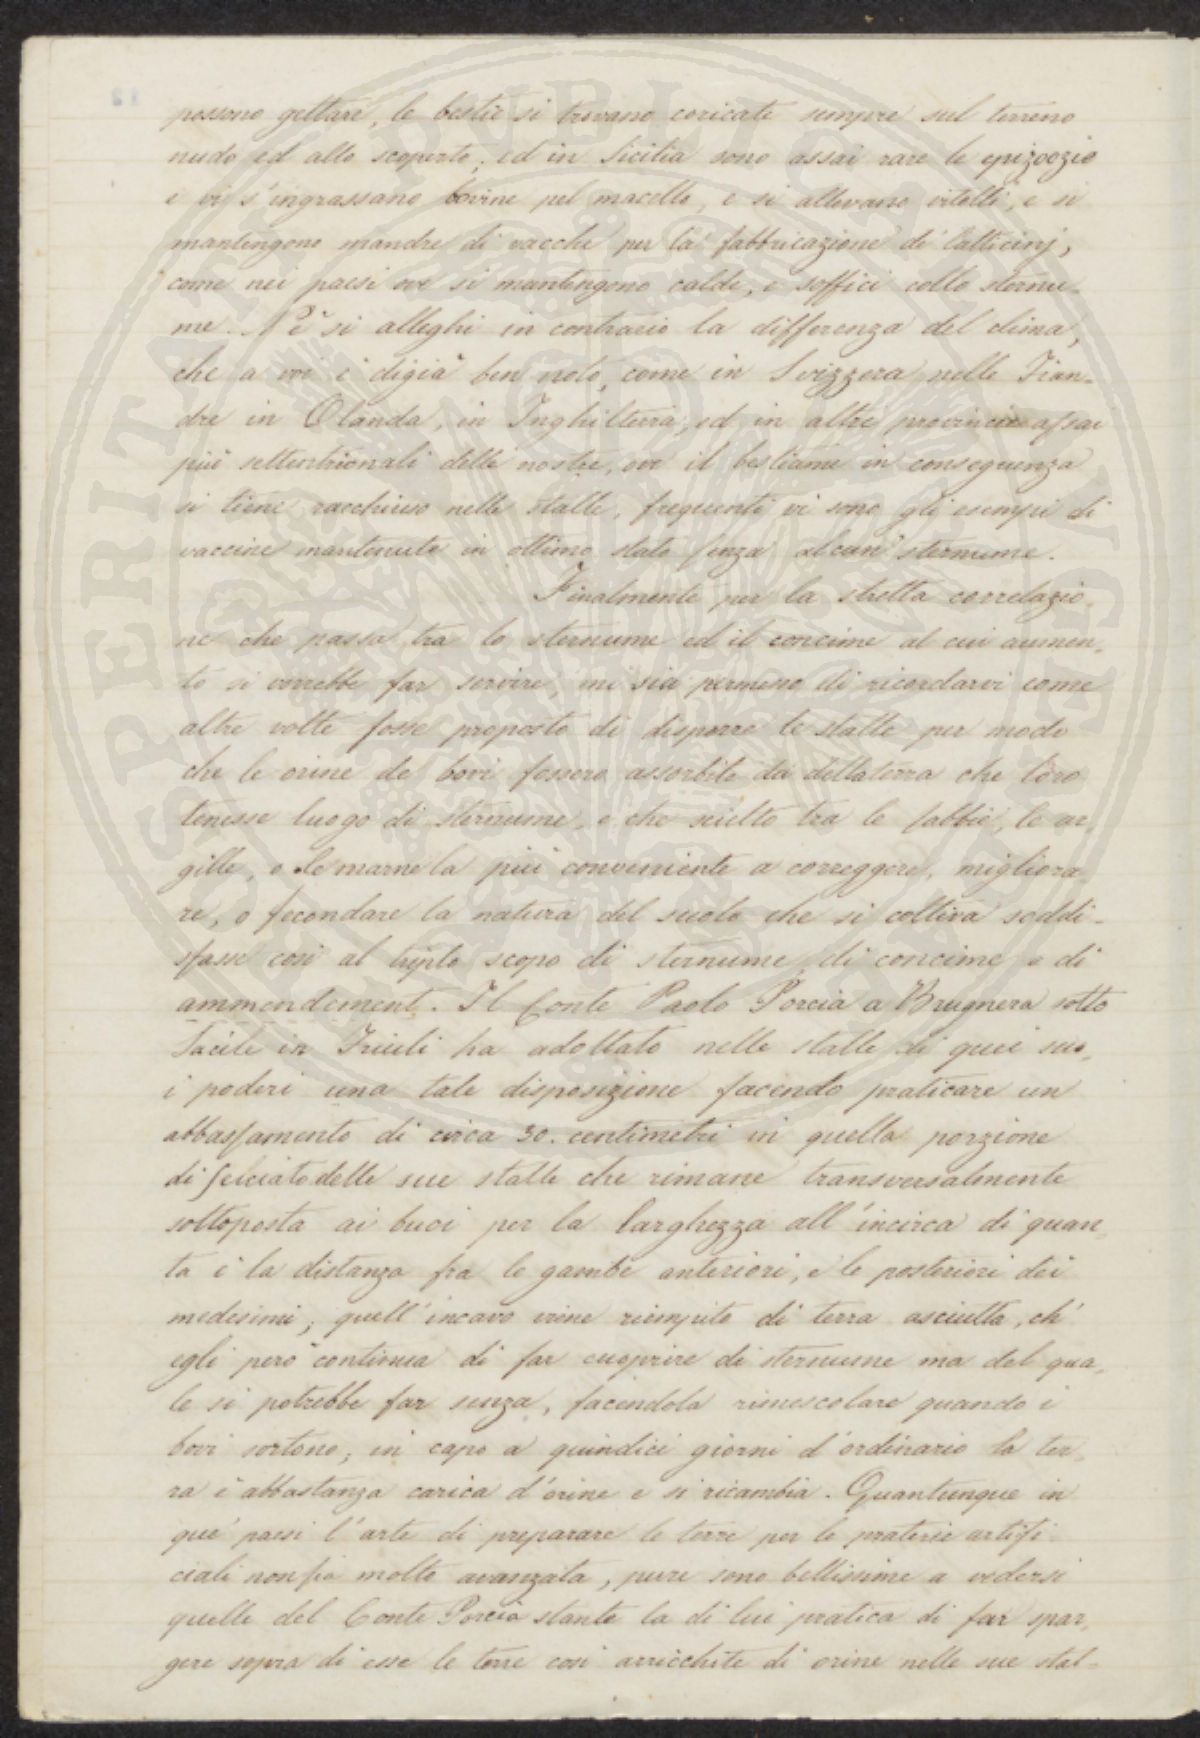 possono gettare, le bestie si trovano coricate sempre sul terreno
nudo ed allo scoperto; ed in Sicilia sono assai rare le epizoozie
e vi s'ingrassano bovine pel macello, e si allevano vitelli, e si
mantengono mandre di vacche per la fabbricazione di latticinj,
come nei paesi ove si mantengono calde, e soffici collo sternu-
me. Nè si alleghi in contrario la differenza del clima,
che a voi è digià ben noto, come in Svizzera, nelle Fian-
dre in Olanda, in Inghilterra, ed in altre provincie assai
più settentrionali delle nostre, ove il bestiame in conseguenza
si tiene racchiuso nelle stalle, frequenti vi sono gli esempi di
vaccine mantenute in ottimo stato senza alcun sternume.
Finalmente per la stretta correlazio-
ne che passa tra lo sternume ed il concime al cui aumen-
to si vorrebbe far servire, mi sia permesso di ricordarvi come
altre volte fosse proposto di disporre le stalle per modo
che le orine de' bovi fossero assorbite da della terra che loro
tenesse luogo di sternume, e che scielto tra le sabbie, le ar-
gille, o le marne la più conveniente a correggere, migliora-
re, o fecondare la natura del suolo che si coltiva soddi-
sfasse così al triplo scopo di sternume, di concime e di
ammendement. Il Conte Paolo Porcia a Brugnera sotto
Sacile in Friuli ha adottato nelle stalle di quei suo-
i poderi una tale disposizione facendo praticare un
abbassamento di circa 30. centimetri in quella porzione
di selciato delle sue stalle che rimane transversalmente
sottoposta ai buoi per la larghezza all'incirca di quan-
ta è la distanza fra le gambe anteriori, e le posteriori dei
medesimi; quell'incavo viene riempito di terra asciutta, ch'
egli però continua di far cuoprire di sternume ma del qua-
le si potrebbe far senza, facendola rimescolare quando i
bovi sortono; in capo a quindici giorni d'ordinario la ter-
ra è abbastanza carica d'orine e si ricambia. Quantunque in
que' paesi l'arte di preparare le terre per le praterie artifi-
ciali non sia molto avanzata, pure sono bellissime a vedersi
quelle del Conte Porcia stante la di lui pratica di far spar-
gere sopra di esse le terre così arricchite di orine nelle sue stal-